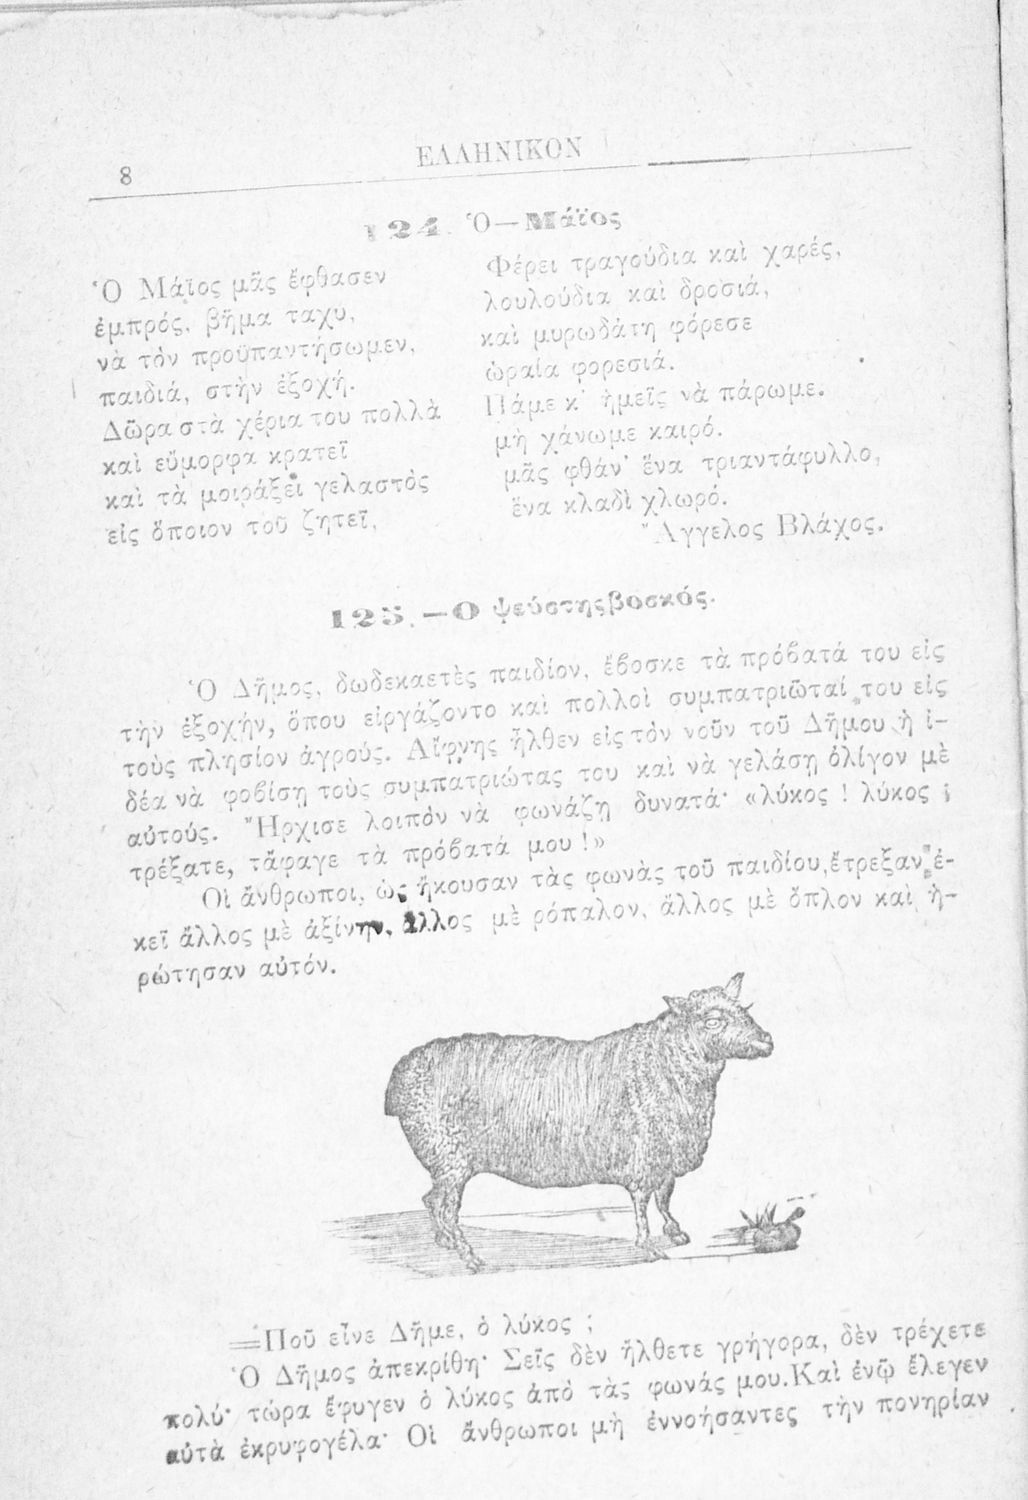 8
ΕΛΛΗΝΙΚΟΝ
124. Ὁ—Μάϊος
Ὁ Μάϊος μᾶς ἔφθασεν
ἐμπρός, βῆμα ταχυ,
νὰ τὸν προϋπαντήσωμεν,
παιδιά, στὴν ἐξοχή.
Δῶρα στὰ χέρια του πολλὰ
καὶ εὔμορφα κρατεῖ
καὶ τὰ μοιράζει γελαστὸς
εἰς ὅποιον τοῦ ζητεῖ,
Φέρει τραγούδια καὶ χαρές,
λουλούδια καὶ δροσιά,
καὶ μυρωδάτη φόρεσε
ὡραία φορεσιά.
Πάμε κ' ἡμεῖς νὰ πάρωμε.
μὴ χάνωμε καιρό.
μᾶς φθάν' ἕνα τριαντάφυλλο,
ἕνα κλαδὶ χλωρό.
Ἄγγελος Βλάχος.
125.—Ο ψεύστης βοσκός.
Ὁ Δῆμος, δωδεκαετὲς παιδίον, ἔβοσκε τὰ πρόβατά του εἰς
τὴν ἐξοχήν, ὅπου εἰργάζοντο καὶ πολλοὶ συμπατριῶταί του εἰς
τοὺς πλησίον ἀγρούς. Αἴφνης ἦλθεν εἰς τὸν νοῦν τοῦ Δήμου ἡ ἰ-
δέα νὰ φοβίσῃ τοὺς συμπατριώτας του καὶ νὰ γελάσῃ ὀλίγον μὲ
αὐτούς. Ἤρχισε λοιπὸν νὰ φωνάζῃ δυνατά· «λύκος ! λύκος ;
τρέξατε, τἄφαγε τὰ πρόβατά μου !»
Οἱ ἄνθρωποι, ὡς ἤκουσαν τὰς φωνὰς τοῦ παιδίου, ἔτρεξαν ἐ-
κεῖ ἄλλος μὲ ἀξίνην, ἄλλος μὲ ρόπαλον, ἄλλος μὲ ὅπλον καὶ ἠ-
ρώτησαν αὐτόν.
=Ποῦ εἶνε Δῆμε, ὁ λύκος ;
Ὁ Δῆμος ἀπεκρίθη· Σεῖς δὲν ἤλθετε γρήγορα, δὲν τρέχετε
πολύ· τώρα ἔφυγεν ὁ λύκος ἀπὸ τὰς φωνάς μου. Καὶ ἐνῷ ἔλεγεν
αὐτὰ ἐκρυφογέλα· Οἱ ἄνθρωποι μὴ ἐννοήσαντες τὴν πονηρίαν